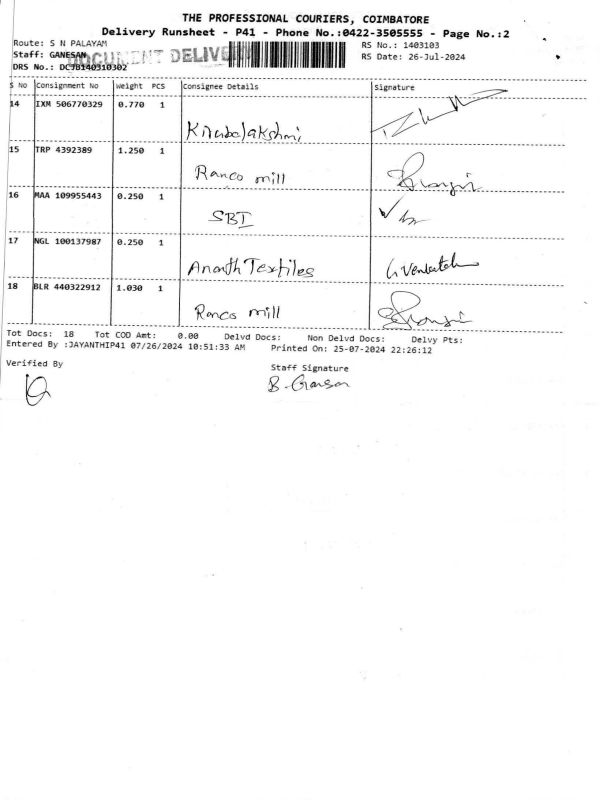 THE PROFESSIONAL COURIERS, COIMBATORE
Delivery Runsheet - P41 - Phone No.:0422-3505555 - Page No.:2
Route: S N PALAYAM RS No.: 1403103
Staff: GANESAN DOCUMENT DELIVE RS Date: 26-Jul-2024
DRS No.: DCJB140310302
S No Consignment No Weight PCS Consignee Details Signature
14 IXM 506770329 0.770 1
15 TRP 4392389 1.250 1
Ranco mill
16 MAA 109955443 0.250 1
SBI
17 NGL 100137987 0.250 1
Ananth Textiles G Venkatesh
18 BLR 440322912 1.030 1
Ranco mill
Tot Docs: 18 Tot COD Amt: 0.00 Delvd Docs: Non Delvd Docs: Delvy Pts:
Entered By :JAYANTHIP41 07/26/2024 10:51:33 AM Printed On: 25-07-2024 22:26:12
Verified By Staff Signature